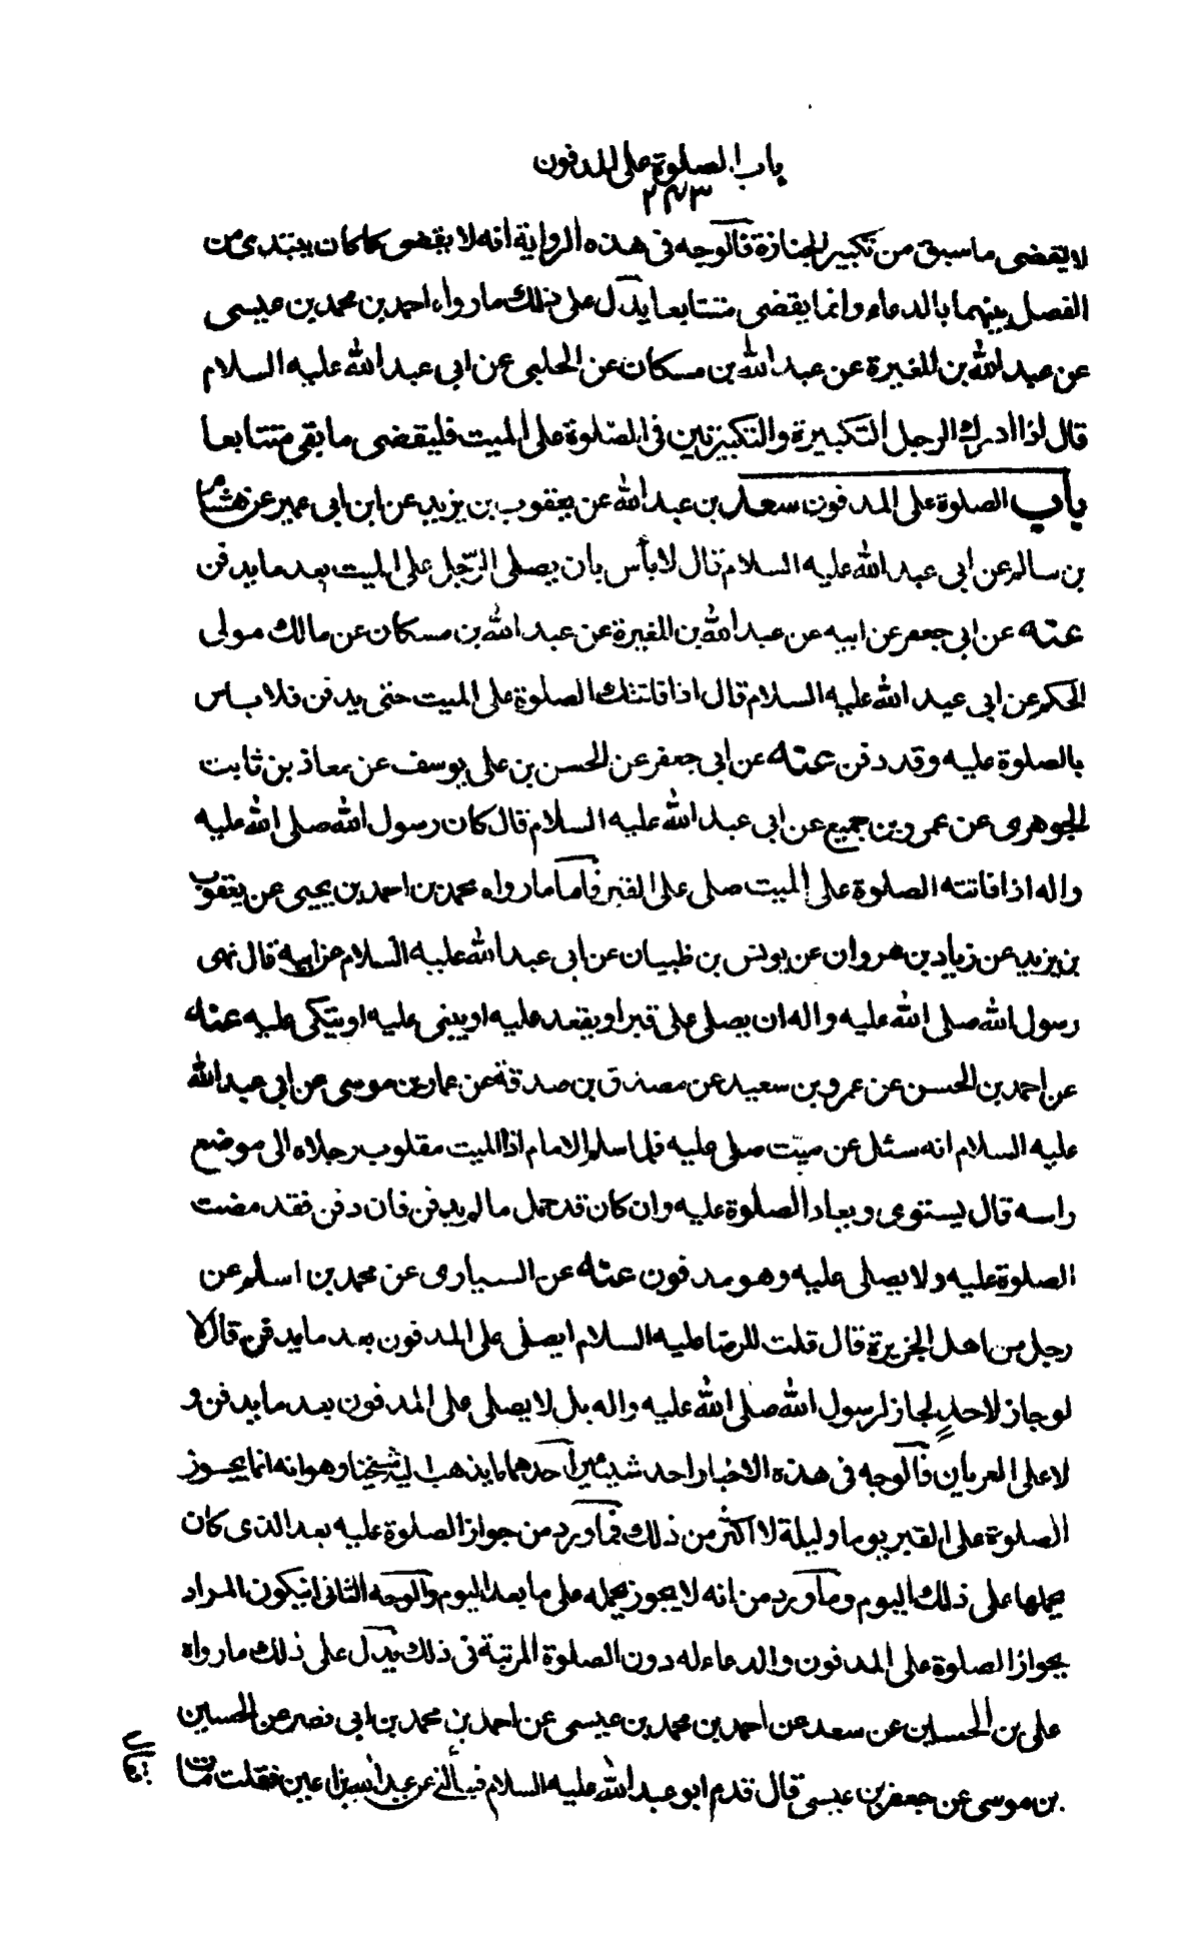 باب الصلوة على المدفون
٢٤٣
لا يقضى ما سبق من تكبير الجنازة فالوجه فى هذه الرواية انه لا يقضى كما كان يبتدى من
الفصل بينهما بالدعاء وانما يقضى متتابعا يدل على ذلك ما رواه احمد بن محمد بن عيسى
عن عبد الله بن المغيرة عن عبد الله بن مسكان عن الحلبى عن ابى عبد الله عليه السلام
قال اذا ادرك الرجل التكبيرة والتكبيرتين فى الصلوة على الميت فليقضى ما بقى متتابعا
باب الصلوة على المدفون سعد بن عبد الله عن يعقوب بن يزيد عن ابن ابى عمير عن هشام
بن سالم عن ابى عبد الله عليه السلام قال لا بأس بان يصلى الرّجل على الميت بعد ما يدفن
عنه عن ابى جعفر عن ابيه عن عبد الله بن المغيرة عن عبد الله بن مسكان عن مالك مولى
الحكم عن ابى عبد الله عليه السلام قال اذا فاتتك الصلوة على الميت حتى يدفن فلا باس
بالصلوة عليه وقد دفن عنه عن ابى جعفر عن الحسن بن على يوسف عن معاذ بن ثابت
الجوهرى عن عمرو بن جميع عن ابى عبد الله عليه السلام قال كان رسول الله صلى الله عليه
واله اذا فاتته الصلوة على الميت صلى على القبر فاما ما رواه محمد بن احمد بن يحيى عن يعقوب
بن يزيد عن زياد بن مروان عن يونس بن ظبيان عن ابى عبد الله عليه السلام عن ابيه قال نهى
رسول الله صلى الله عليه واله ان يصلى على قبر او يقعد عليه او يبنى عليه او يتكى عليه عنه
عن احمد بن الحسن عن عمرو بن سعيد عن مصدق بن صدقة عن عمار بن موسى عن ابى عبد الله
عليه السلام انه سئل عن ميّت صلى عليه فلما سلم الامام اذا الميت مقلوب رجلاه الى موضع
راسه قال يستوى ويعاد الصلوة عليه وان كان قد حمل ما لم يدفن فان دفن فقد مضت
الصلوة عليه ولا يصلى عليه وهو مدفون عنه عن السيارى عن محمد بن اسلم عن
رجل من اهل الجزيرة قال قلت للرضا عليه السلام ايصلى على المدفون بعد ما يدفن قال لا
لو جاز لاحدٍ لجاز لرسول الله صلى الله عليه واله بل لا يصلى على المدفون بعد ما يدفن و
لا على العريان فالوجه فى هذه الاخبار احد شيئين احدهما ما يذهب اليه شيخنا وهو انه انما يجوز
الصلوة على القبر يوما وليلة لا اكثر من ذلك فما ورد من جواز الصلوة عليه بعد الذى كان
يحملها على ذلك اليوم وما ورد من انه لا يجوز يحمله على ما بعد اليوم والوجه الثانى ان يكون المراد
بجواز الصلوة على المدفون والدعاء له دون الصلوة المرتبة فى ذلك يدل على ذلك ما رواه
على بن الحسين عن سعد عن احمد بن محمد بن عيسى عن احمد بن محمد بن ابى نصر عن الحسين
بن موسى عن جعفر بن عيسى قال قدم ابو عبد الله عليه السلام فسألنى عن عبد الله بن اعين فقلت مات